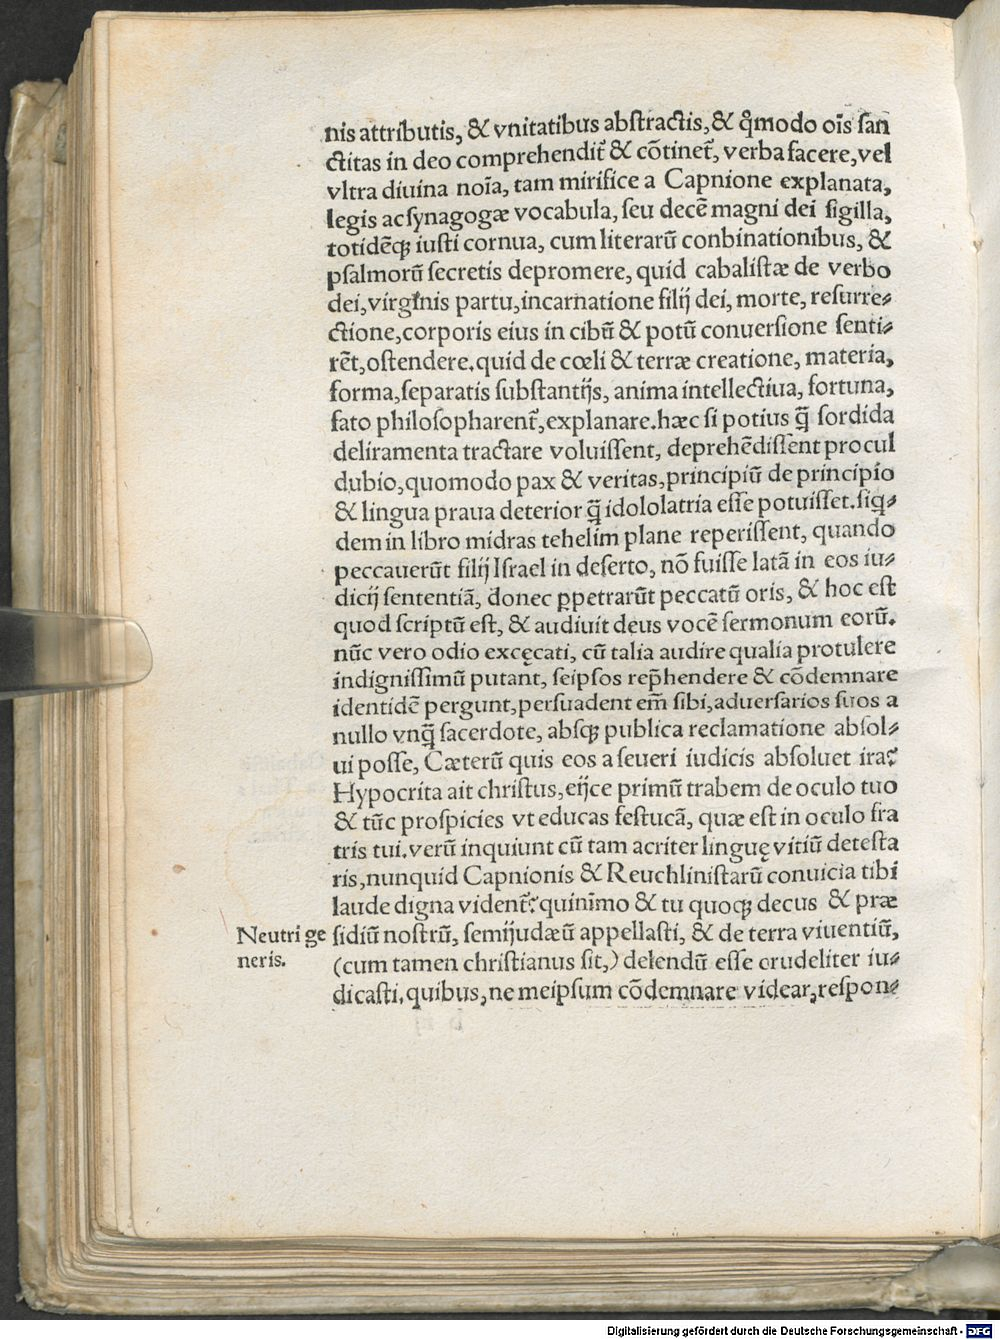 nis attributis, & vnitatibus abstractis, & q̊modo oĩs san
ctitas in deo comprehendit᷑ & cõtinet᷑, verba facere, vel
vltra diuina noĩa, tam mirifice a Capnione explanata,
legis ac synagogæ vocabula, seu decẽ magni dei sigilla,
totidẽq; iusti cornua, cum literarũ conbinationibus, &
psalmorũ secretis depromere, quid cabalistæ de verbo
dei, virginis partu, incarnatione filij dei, morte, resurre⸗
ctione, corporis eius in cibũ & potũ conuersione senti⸗
rẽt, ostendere. quid de cœli & terræ creatione, materia,
forma, separatis substantijs, anima intellectiua, fortuna,
fato philosopharent᷑, explanare. hæc si potius q̃ sordida
deliramenta tractare voluissent, deprehẽdissent procul
dubio, quomodo pax & veritas, principiũ de principio
& lingua praua deterior q̃ idololatria esse potuisset. siq⸗
dem in libro midras tehelim plane reperissent, quando
peccauerũt filij Israel in deserto, nõ fuisse latã in eos iu⸗
dicij sententiã, donec ꝑpetrarũt peccatũ oris, & hoc est
quod scriptũ est, & audiuit deus vocẽ sermonum eorũ.
nũc vero odio excęcati, cũ talia audire qualia protulere
indignissimũ putant, seipsos rep̃hendere & cõdemnare
identidẽ pergunt, persuadent em̃ sibi, aduersarios suos a
nullo vnq̃ sacerdote, absq; publica reclamatione absol⸗
ui posse, Cæterũ quis eos a seueri iudicis absoluet ira?
Hypocrita ait christus, eijce primũ trabem de oculo tuo
& tũc prospicies vt educas festucã, quæ est in oculo fra
tris tui. verũ inquiunt cũ tam acriter linguę vitiũ detesta
ris, nunquid Capnionis & Reuchlinistarũ conuicia tibi
laude digna vident᷑? quinimo & tu quoq; decus & præ
Neutri ge sidiũ nostrũ, semijudæũ appellasti, & de terra viuentiũ,
neris. (cum tamen christianus sit,) delendũ esse crudeliter iu⸗
dicasti. quibus, ne meipsum cõdemnare videar, respon⸗
Digitalisierung gefördert durch die Deutsche Forschungsgemeinschaft - DFG